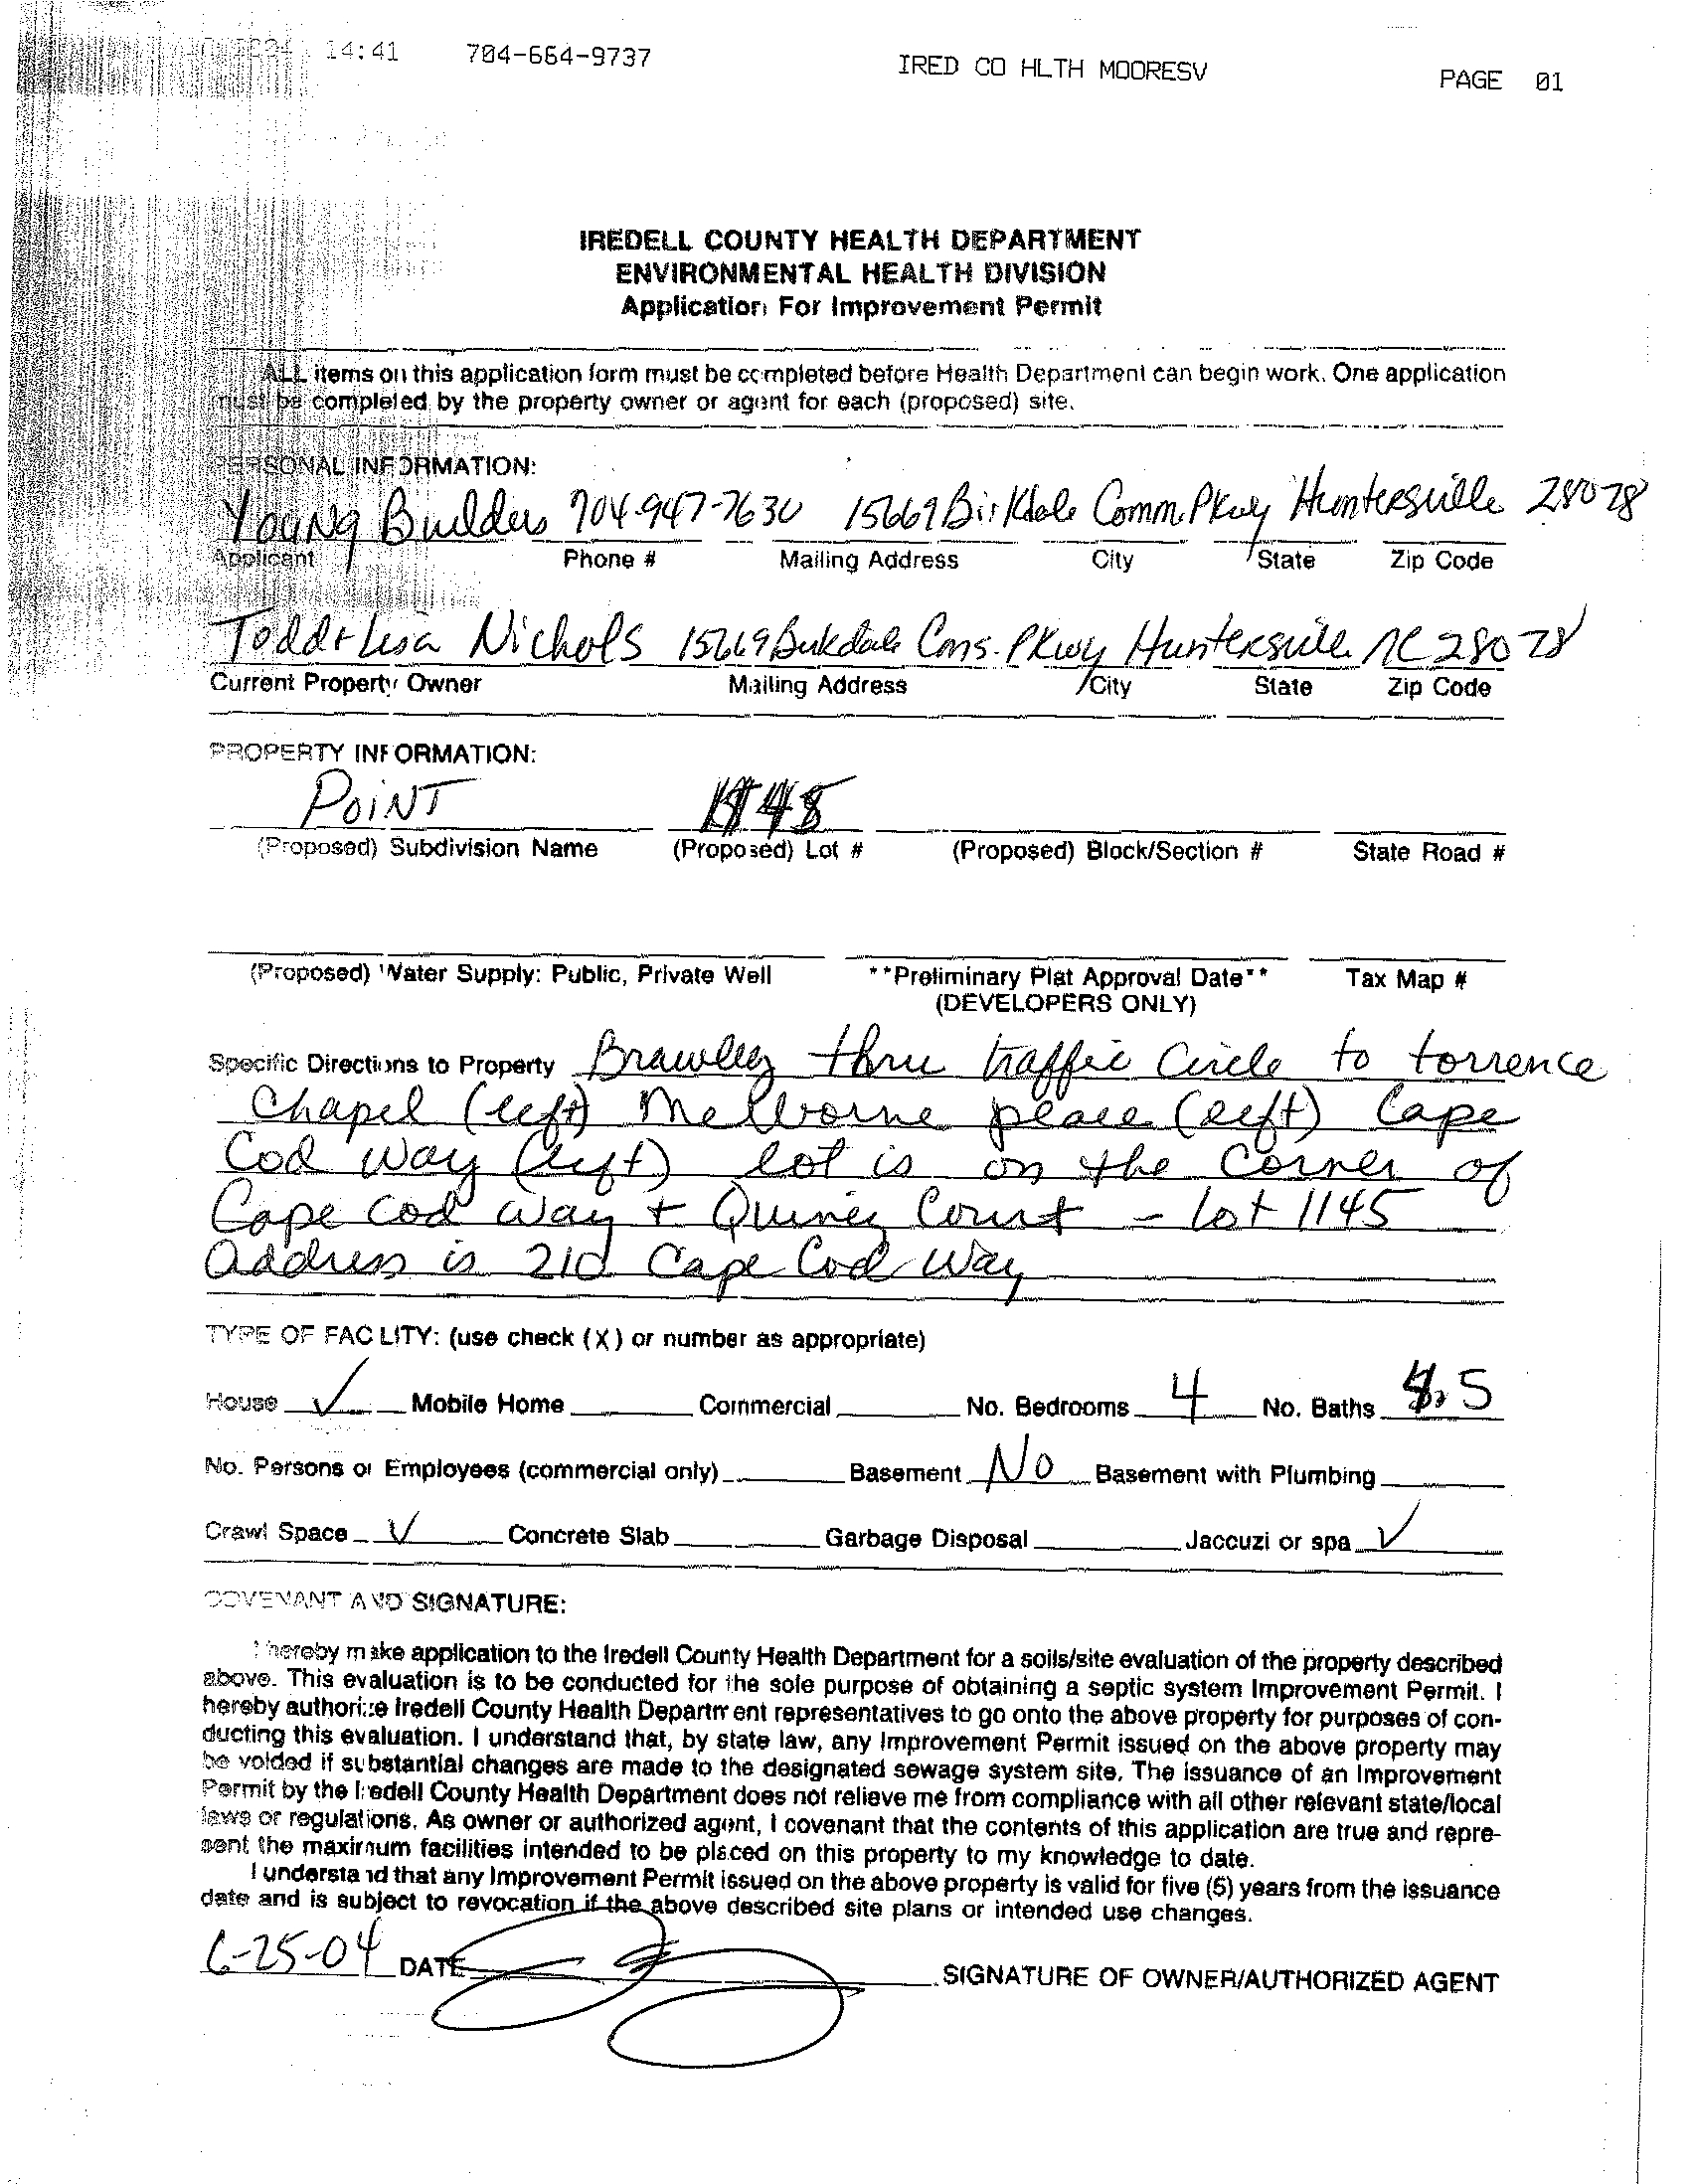 14:41 704-664-9737 IRED CO HLTH MOORESV PAGE 01
IREDELL COUNTY HEALTH DEPARTMENT
ENVIRONMENTAL HEALTH DIVISION
Application For Improvement Permit
ALL items on this application form must be completed before Health Department can begin work. One application
must be completed by the property owner or agent for each (proposed) site.
PERSONAL INFORMATION:
Young Builders 704-947-7630 15669 Birkdale Comm. Pkwy Huntersville 28078
Applicant Phone # Mailing Address City State Zip Code
Todd + Lisa Nichols 15669 Birkdale Cms. Pkwy Huntersville NC 28078
Current Property Owner Mailing Address City State Zip Code
PROPERTY INFORMATION:
POINT
(Proposed) Subdivision Name (Proposed) Lot # (Proposed) Block/Section # State Road #
(Proposed) Water Supply: Public, Private Well **Preliminary Plat Approval Date** Tax Map #
(DEVELOPERS ONLY)
Specific Directions to Property Brawley thru traffic Circle to torrence
Chapel (left) Melborne place (left) Cape
Cod Way (left) lot is on the Corner of
Cape Cod Way + Quincy Court - lot 1145
Address is 210 Cape Cod Way
TYPE OF FACILITY: (use check (X) or number as appropriate)
House ✓ Mobile Home Commercial No. Bedrooms 4 No. Baths .5
No. Persons or Employees (commercial only) Basement No Basement with Plumbing
Crawl Space ✓ Concrete Slab Garbage Disposal Jaccuzi or spa ✓
COVENANT AND SIGNATURE:
I hereby make application to the Iredell County Health Department for a soils/site evaluation of the property described
above. This evaluation is to be conducted for the sole purpose of obtaining a septic system Improvement Permit. I
hereby authorize Iredell County Health Department representatives to go onto the above property for purposes of con-
ducting this evaluation. I understand that, by state law, any Improvement Permit issued on the above property may
be voided if substantial changes are made to the designated sewage system site. The issuance of an Improvement
Permit by the Iredell County Health Department does not relieve me from compliance with all other relevant state/local
laws or regulations. As owner or authorized agent, I covenant that the contents of this application are true and repre-
sent the maximum facilities intended to be placed on this property to my knowledge to date.
I understand that any Improvement Permit issued on the above property is valid for five (5) years from the issuance
date and is subject to revocation if the above described site plans or intended use changes.
6-25-04 DATE SIGNATURE OF OWNER/AUTHORIZED AGENT